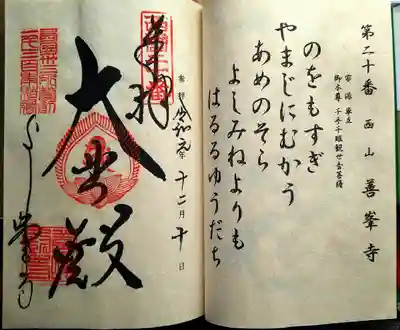 第二十番 西山 善峯寺
宗派 単立
御本尊 千手千眼観世音菩薩
のをもすぎ
やまじにむかう
あめのそら
よしみねよりも
はるるゆうだち
奉拝 令和元年十二月十日
大悲殿
よしみね寺